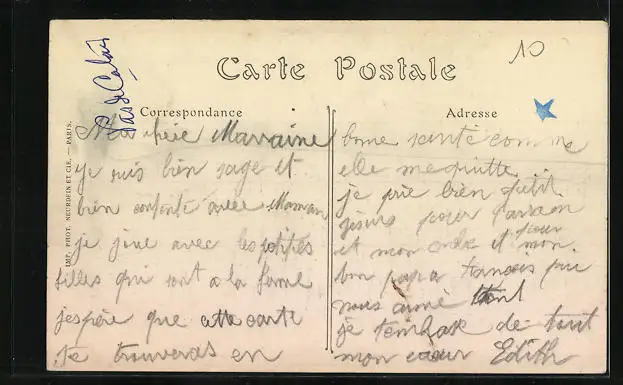 10
Pas de Calais
Carte Postale
Correspondance
Adresse
IMP. PHOT. NEURDEIN ET CIE. — PARIS.
Ma Marraine
je suis bien sage et
bien contente avec Maman
je joue avec les petites
filles qui sont a la ferme
j'espère que cette carte
te trouveras en
bonne santé comme
elle me quitte.
je prie bien petit
jésus pour parrain
et mon oncle et pour mon
bon papa francais qui
nous aime tant
je t'embrasse de tout
mon cœur Edith